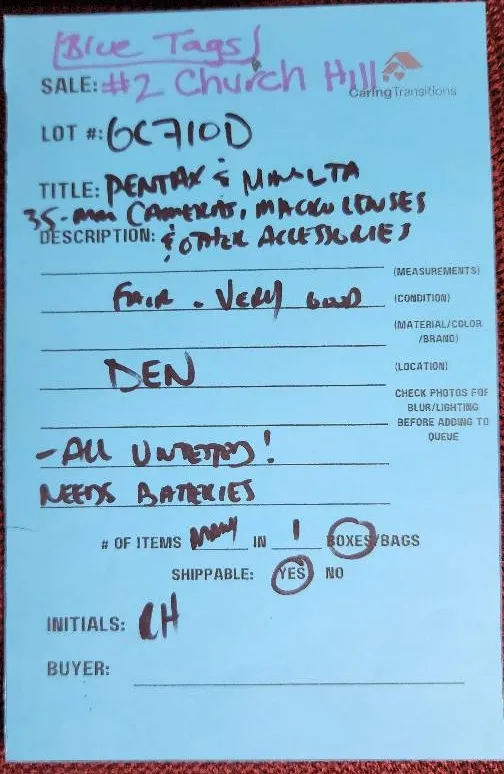 {Blue Tags}
SALE: #2 Church Hill
CaringTransitions
LOT #: GC710D
TITLE: PENTAX & MINOLTA
35-mm CAMERAS, MACRO LENSES
DESCRIPTION: & OTHER ACCESSORIES
(MEASUREMENTS)
FAIR - VERY GOOD (CONDITION)
(MATERIAL/COLOR
/BRAND)
DEN (LOCATION)
CHECK PHOTOS FOR
BLUR/LIGHTING
BEFORE ADDING TO
QUEUE
- ALL UNTESTED!
NEEDS BATERIES
# OF ITEMS MANY IN 1 BOXES/BAGS
SHIPPABLE: YES NO
INITIALS: CH
BUYER: